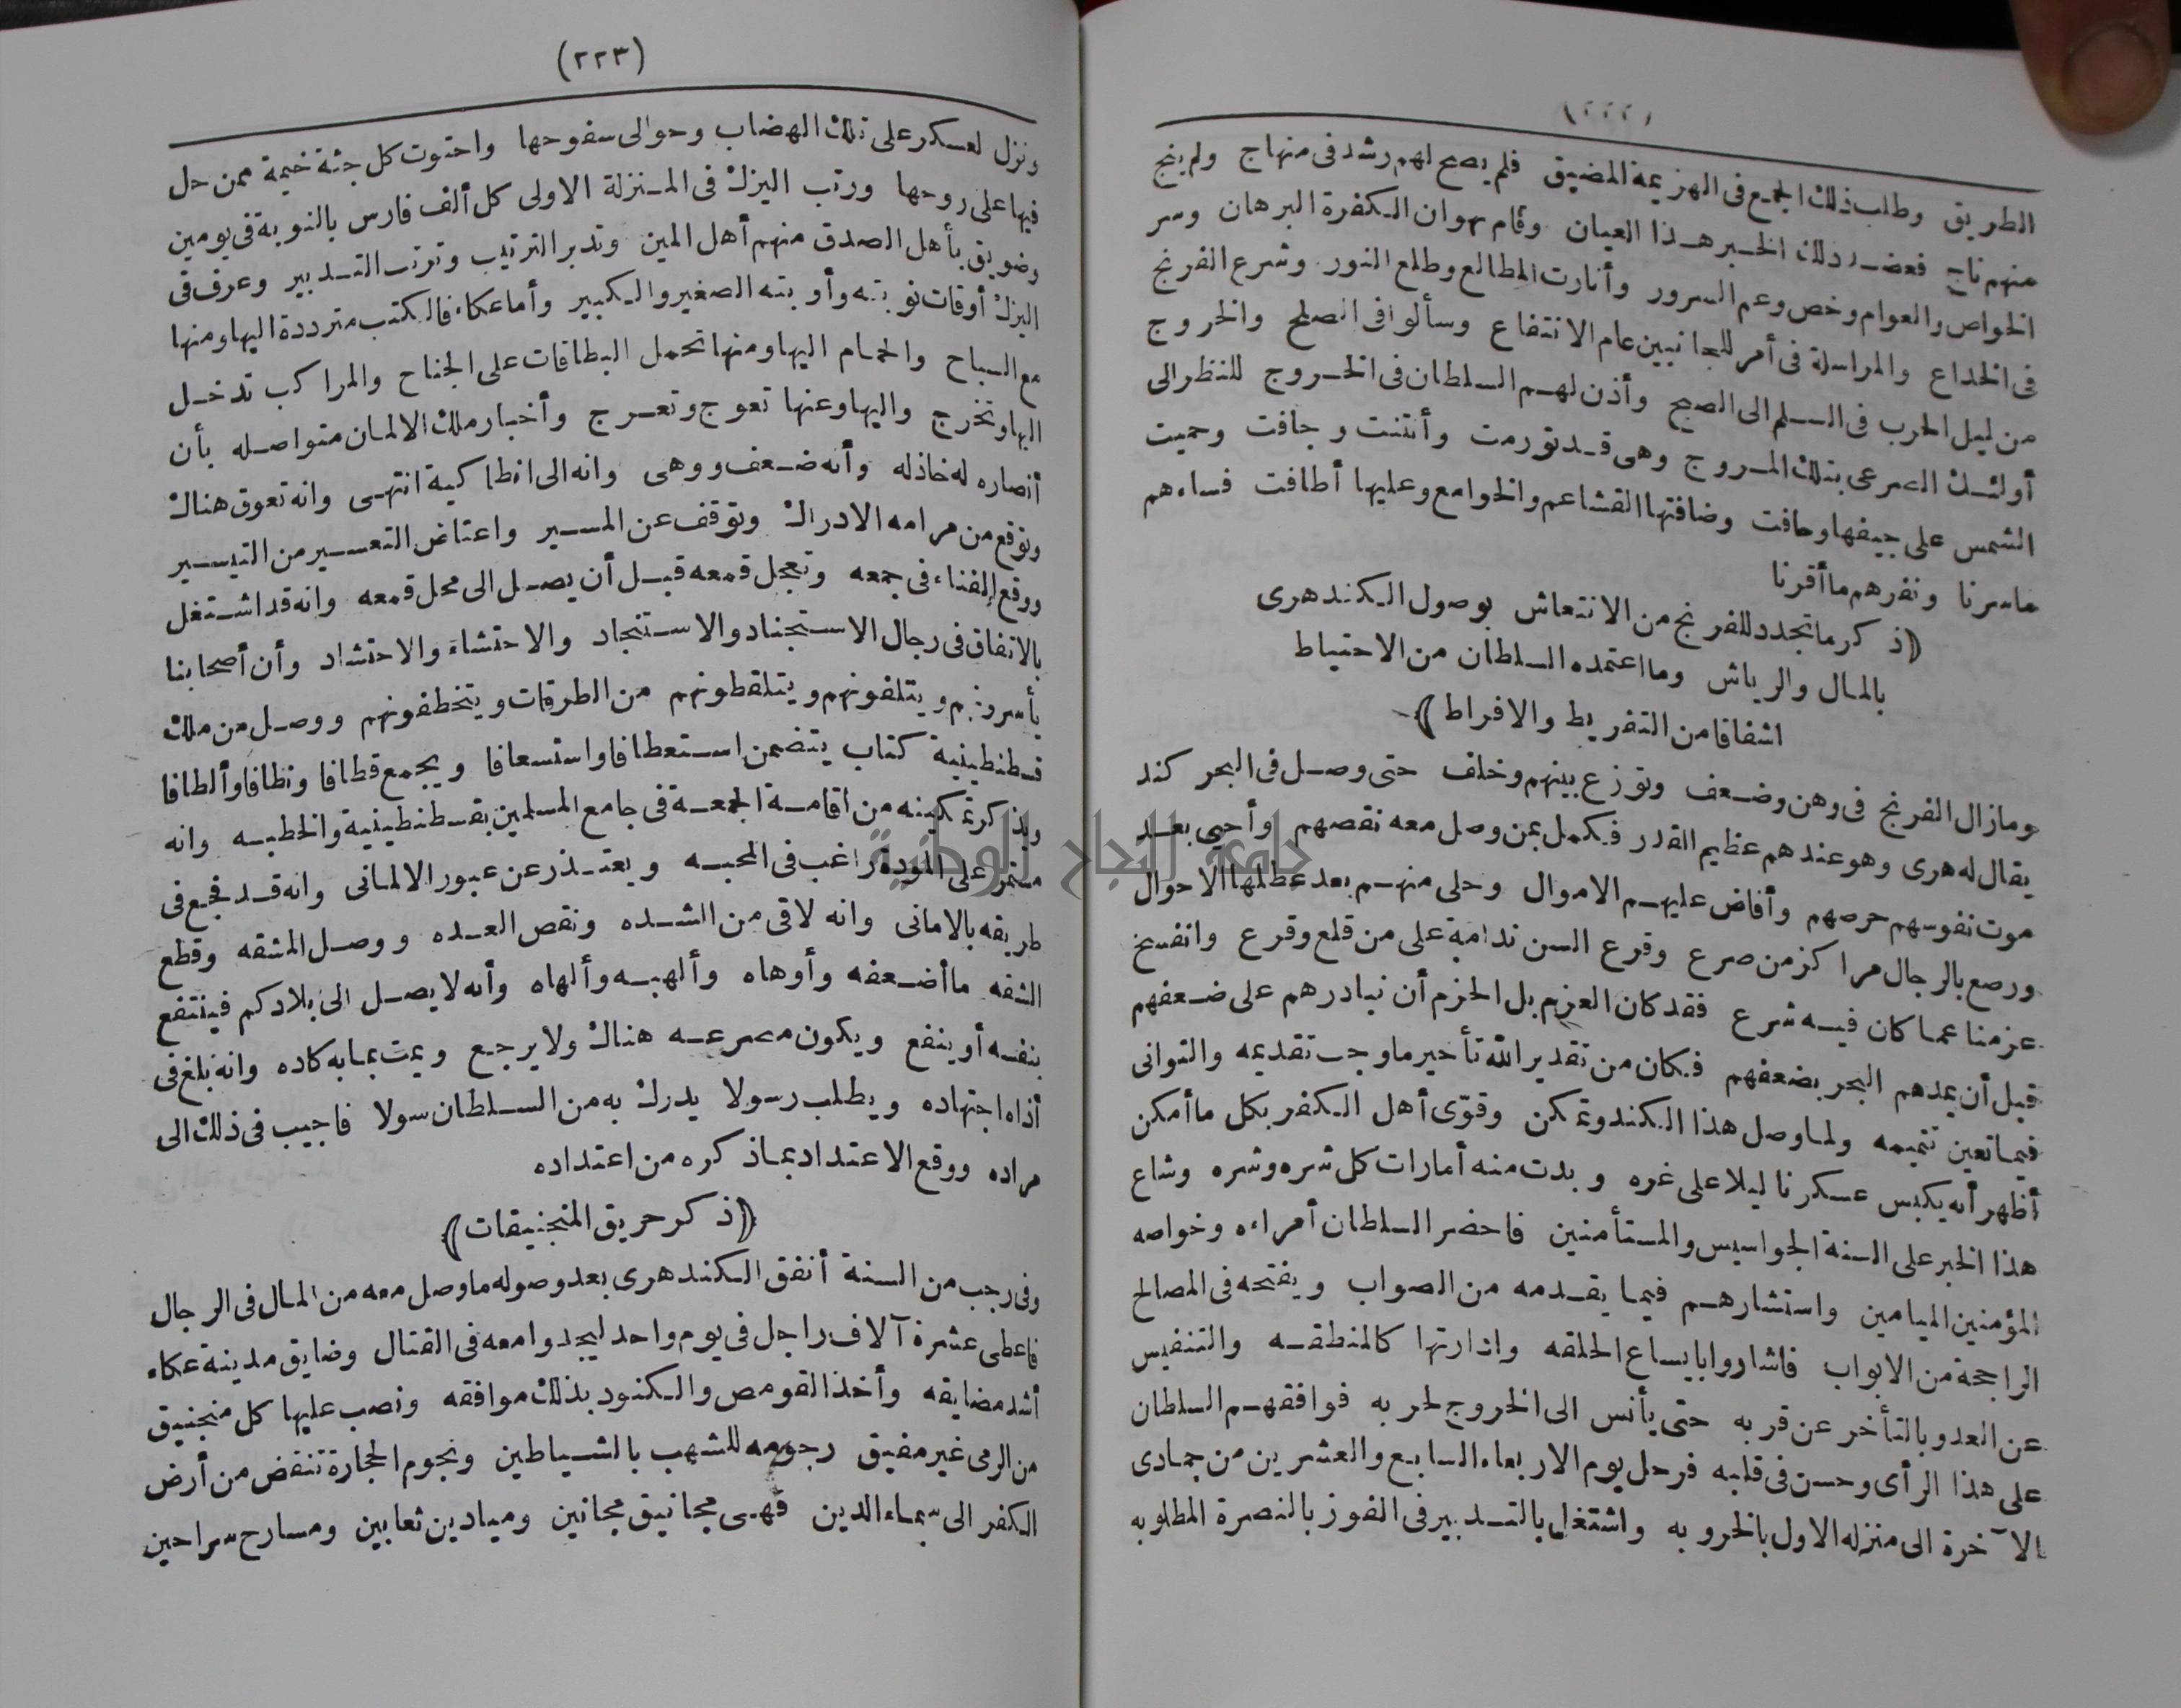 (٢٢٢)
الطريق وطلب ذلك الجمع في الهزيمة المضيق فلم يصح لهم رشد في منهاج ولم ينج
منهم ناج فعضد ذلك الخبر هذا العيان وقام بهوان الكفرة البرهان وسر
الخواص والعوام وخص وعم السرور وأنارت المطالع وطلع النور وشرع الفرنج
في الخداع والمراسلة في أمر للجانبين عام الانتفاع وسألوا في الصلح والخروج
من ليل الحرب في السلم الى الصبح وأذن لهم السلطان في الخروج للنظر الى
أولئك الصرعى بتلك المروج وهي قد تورمت وأنتنت وجافت وحميت
الشمس على جيفها وحافت وضافتها القشاعم والخوامع وعليها أطافت فساءهم
ماسرنا ونفرهم ما أقرنا
(ذكر ما تجدد للفرنج من الانتعاش بوصول الكندهرى
بالمال والرياش وما اعتمده السلطان من الاحتياط
اشفاقا من التفريط والافراط)
ومازال الفرنج في وهن وضعف وتوزع بينهم وخلف حتى وصل في البحر كند
يقال له هرى وهو عندهم عظيم القدر فكمل بمن وصل معه نقصهم وأحيى بعد
موت نفوسهم حرصهم وأفاض عليهم الاموال وحلى منهم بعد عطلها الاحوال
ورصع بالرجال مراكز من صرع وقرع السن ندامة على من قلع وقرع وانفسخ
عزمنا عما كان فيه شرع فقد كان العزم بل الحزم أن نبادرهم على ضعفهم
قبل أن يمدهم البحر بضعفهم فكان من تقدير الله تأخير ما وجب تقديمه والتوانى
فيما تعين تتميمه ولما وصل هذا الكند وتمكن وقوّى أهل الكفر بكل ما أمكن
أظهر أنه يكبس عسكرنا ليلا على غره وبدت منه أمارات كل شره وشره وشاع
هذا الخبر على السنة الجواسيس والمستأمنين فاحضر السلطان أمراءه وخواصه
المؤمنين الميامين واستشارهم فيما يقدمه من الصواب ويفتحه في المصالح
الراجحة من الابواب فاشاروا بايساع الحلقه وادارتها كالمنطقه والتنفيس
عن العدو بالتأخر عن قربه حتى يأنس الى الخروج لحربه فوافقهم السلطان
على هذا الرأى وحسن في قلبه فرحل يوم الاربعاء السابع والعشرين من جمادى
الآخرة الى منزله الاول بالخروبه واشتغل بالتدبير في الفوز بالنصرة المطلوبه
(٢٢٣)
ونزل لعسكر على تلك الهضاب وحوالى سفوحها واحتوت كل جثة خيمة ممن حل
فيها على روحها ورتب اليزك في المنزلة الاولى كل ألف فارس بالنوبة في يومين
وضويق بأهل الصدق منهم أهل المين وتدبر الترتيب وترتب التدبير وعرف في
اليزك أوقات نوبته وأوبته الصغير والكبير وأما عكاء فالكتب مترددة اليها ومنها
مع السباح والحمام اليها ومنها تحمل البطاقات على الجناح والمراكب تدخل
اليها وتخرج واليها وعنها تعوج وتعرج وأخبار ملك الالمان متواصله بأن
أنصاره له خاذله وأنه ضعف ووهى وانه الى انطاكية انتهى وانه تعوق هناك
وتوقع من مرامه الادراك وتوقف عن المسير واعتاض التعسير من التيسير
ووقع الفناء في جمعه وتعجل قمعه قبل أن يصل الى محل قمعه وانه قد اشتغل
بالانفاق في رجال الاستجناد والاستنجاد والاحتشاء والاحتشاد وأن أصحابنا
يأسرونهم ويتلفونهم ويتلقطونهم من الطرقات ويتخطفونهم ووصل من ملك
قسطنطينية كتاب يتضمن استعطافا واستسعافا ويجمع قطافا ونطافا وألطافا
ويذكر تمكينه من اقامة الجمعة في جامع المسلمين بقسطنطينية والخطبه وانه
مستمر على المودة راغب في المحبه ويعتذر عن عبور الالمانى وانه قد فجع في
طريقه بالامانى وانه لاقى من الشده ونقص العده ووصل المشقه وقطع
الشقه ما أضعفه وأوهاه وألهبه وألهاه وأنه لا يصل الى بلادكم فينتفع
بنفسه أو ينفع ويكون مصرعه هناك ولا يرجع ويمت بما به كاده وانه بلغ في
أذاه اجتهاده ويطلب رسولا يدرك به من السلطان سولا فاجيب في ذلك الى
مراده ووقع الاعتداد بما ذكره من اعتداده
(ذكر حريق المنجنيقات)
وفي رجب من السنة أنفق الكندهرى بعد وصوله ما وصل معه من المال في الرجال
فاعطى عشرة آلاف راجل في يوم واحد ليجدوا معه في القتال وضايق مدينة عكاء
أشد مضايقه وأخذ القومص والكنود بذلك موافقه ونصب عليها كل منجنيق
من الرمى غير مفيق رجومه للشهب بالشياطين ونجوم الحجارة تنقض من أرض
الكفر الى سماء الدين فهى مجانيق مجانين وميادين ثعابين ومسارح سراحين
جامعة النجاح الوطنية